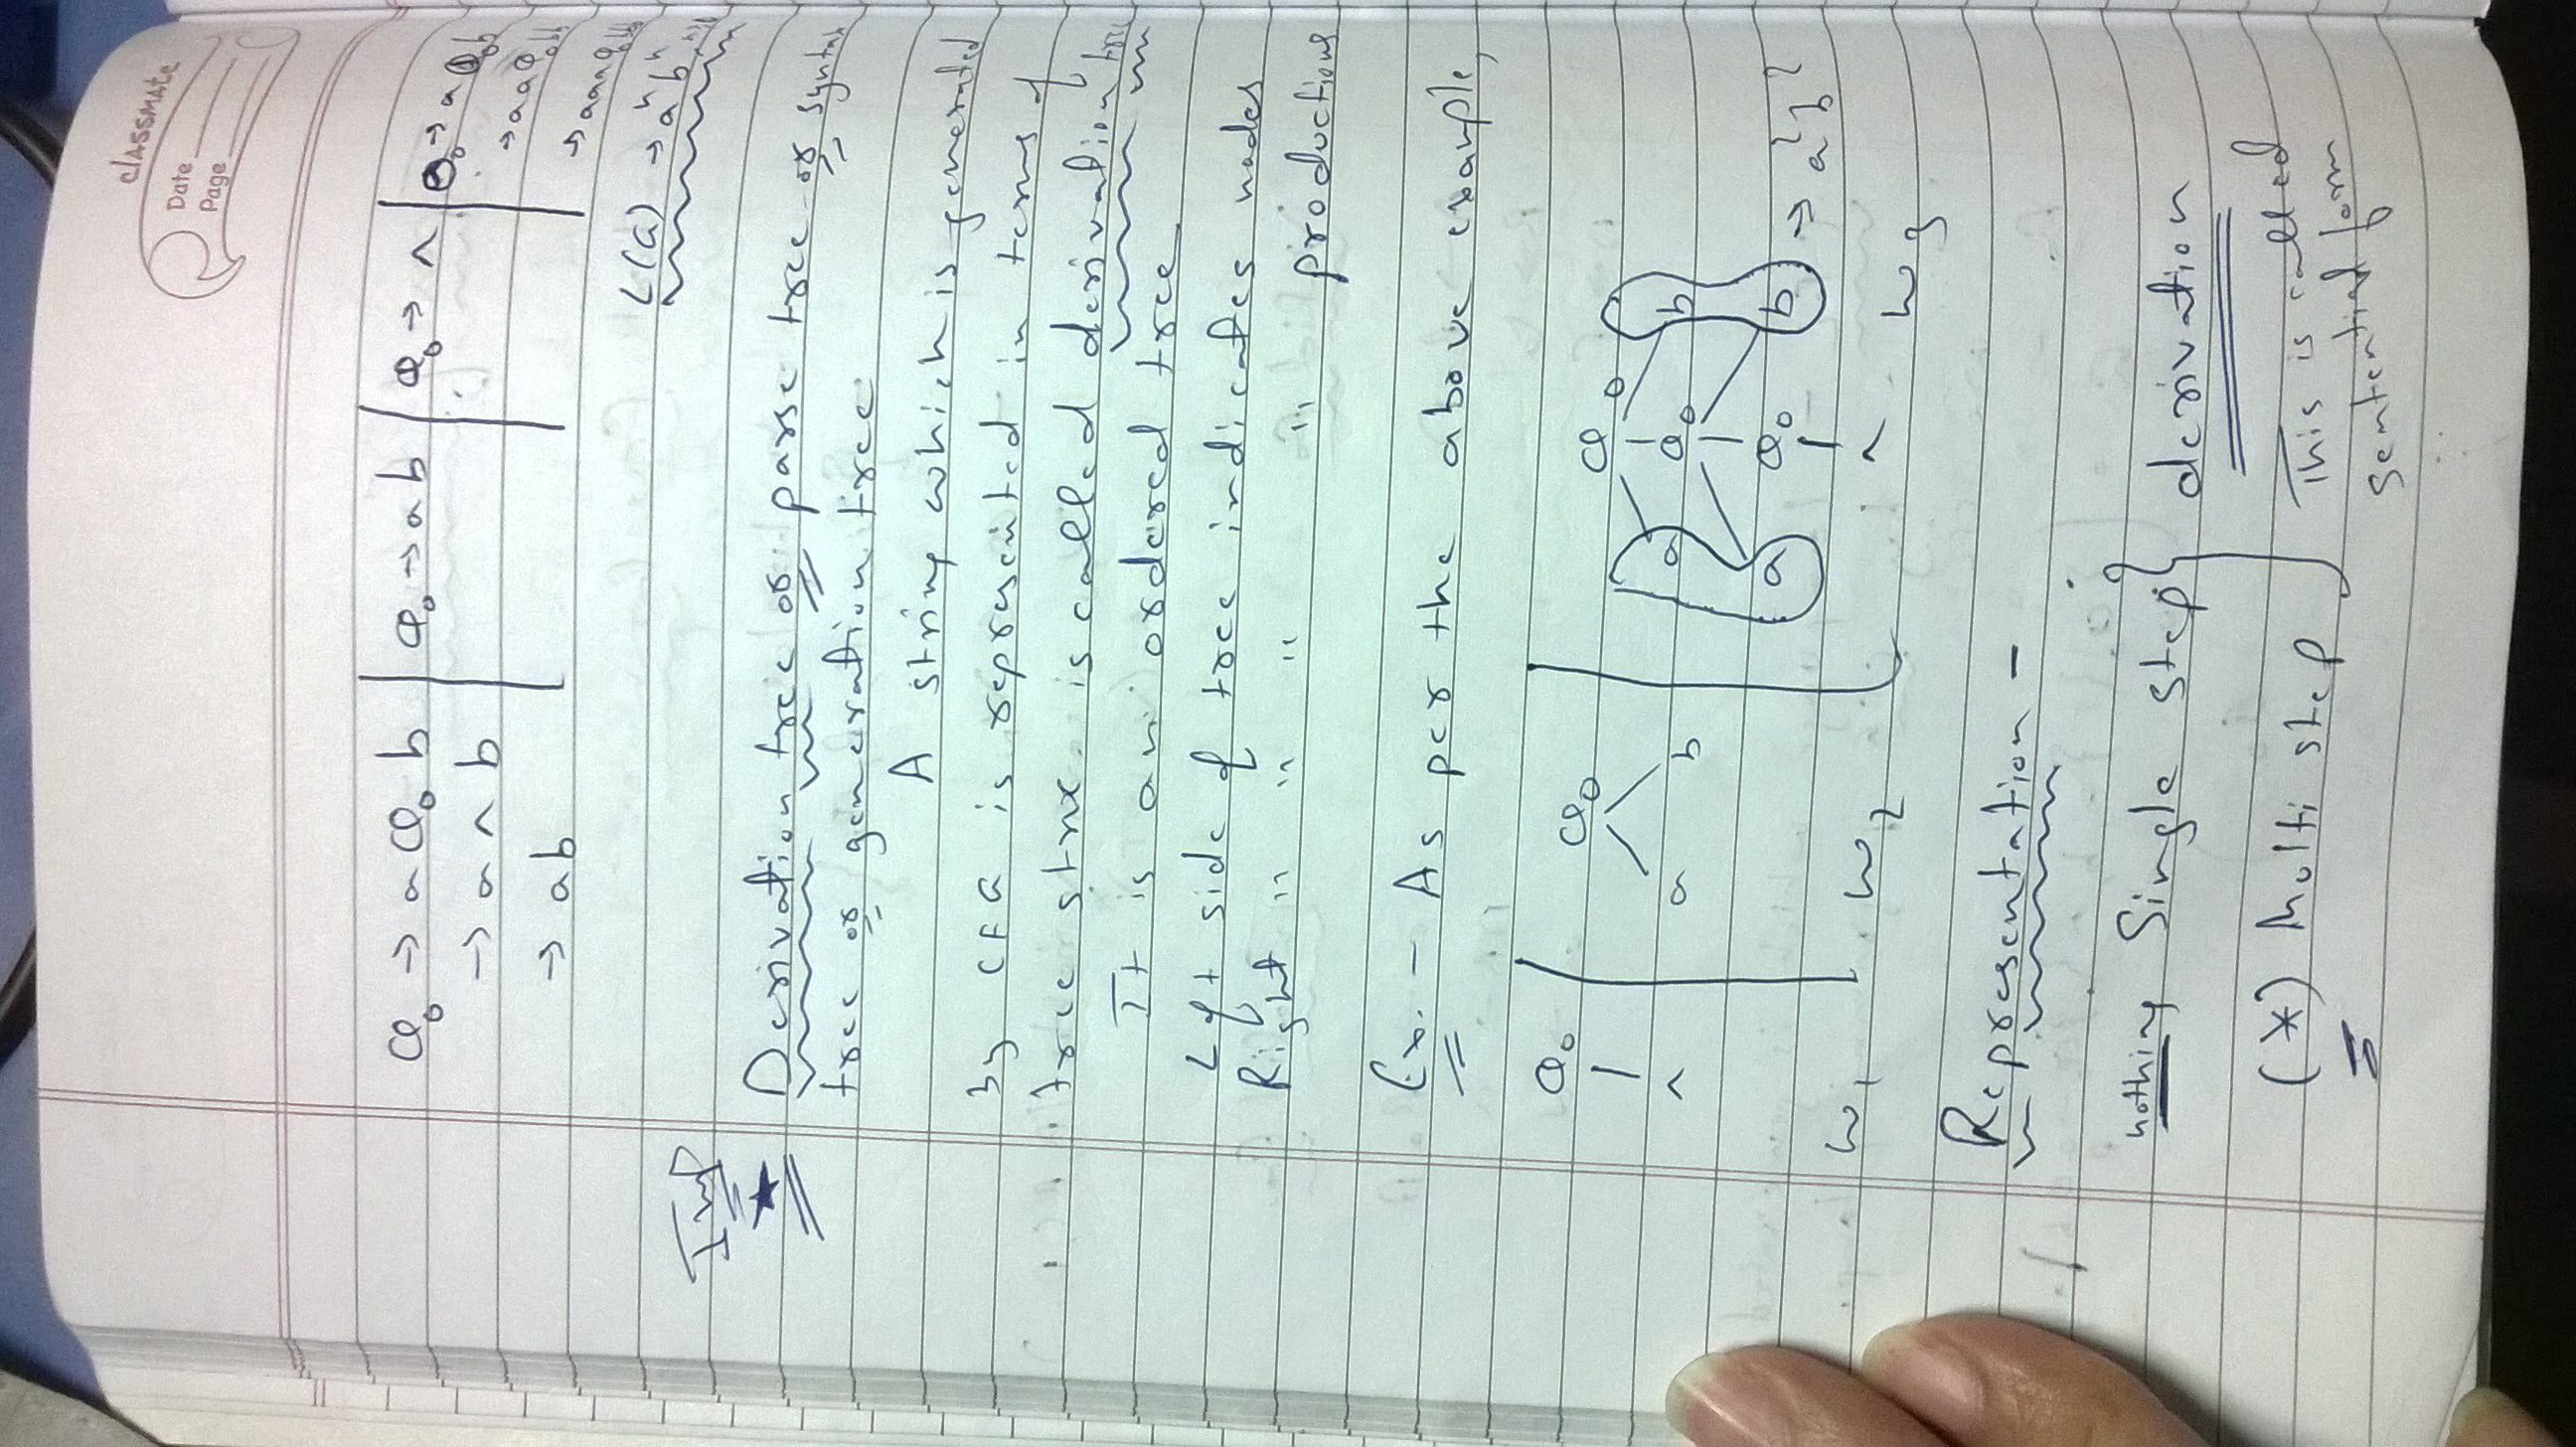 classmate
Date
Page
Q₀ → a Q₀ b | Q₀ → ab | Q₀ → ^ | Q₀ → a Q₀ b
→ a ^ b → aa Q₀ bb
→ ab → aaa Q₀ bbb
L(G) → aⁿ bⁿ
Imp
★ Derivation tree or parse tree or syntax
tree or generation tree
A string which is generated
by CFG is represented in terms of
tree strux. is called derivation tree
It is an ordered tree
Left side of tree indicates nodes
Right " " " " productions
Ex. – As per the above example,
Q₀ Q₀ Q₀
^ a b a Q₀ b
a Q₀ b → a² b²
^
W₁ W₂ W₃
Representation –
nothing Single step } derivation
(*) Multi step This is called
sentential form